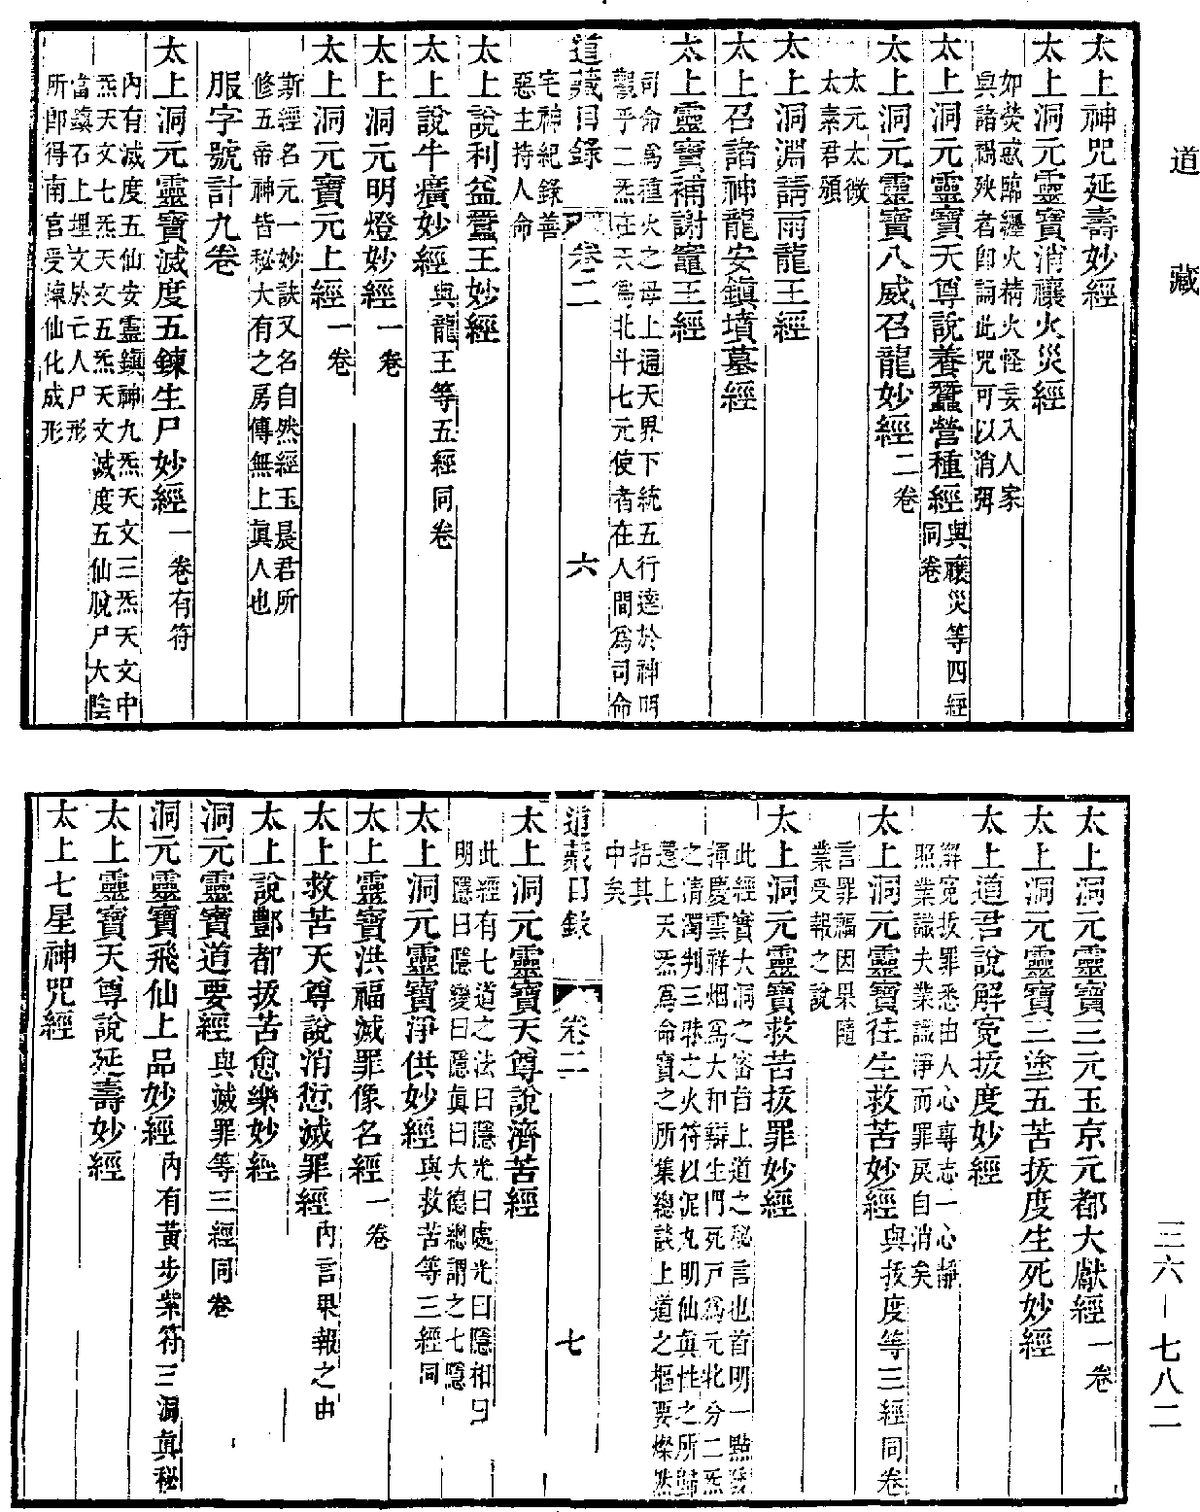 道藏
太上神咒延壽妙經
太上洞元靈寶消禳火災經
如熒惑臨纏火精火怪妄入人家
與諸禍殃者卽誦此咒可以消弭
太上洞元靈寶天尊說養蠶營種經與禳災等四經同卷
太上洞元靈寶八威召龍妙經二卷
太元太微
太素君頒
太上洞淵請雨龍王經
太上召諸神龍安鎮墳墓經
太上靈寶補謝竈王經
司命爲種火之母上通天界下統五行達於神明
觀乎二炁在天爲北斗七元使者在人間爲司命
道藏目錄 卷二 六
宅神紀錄善
惡主持人命
太上說利益蠶王妙經
太上說牛癀妙經與龍王等五經同卷
太上洞元明燈妙經一卷
太上洞元寶元上經一卷
斯經名元一妙訣又名自然經玉晨君所
修五帝神皆秘大有之房傳無上眞人也
服字號計九卷
太上洞元靈寶滅度五鍊生尸妙經一卷有符
內有滅度五仙安靈鎮神九炁天文三炁天文中
炁天文七炁天文五炁天文滅度五仙脫尸大陰
當鎮石上埋文於亡人尸形
所卽得南宮受鍊仙化成形
太上洞元靈寶三元玉京元都大獻經一卷
太上洞元靈寶三塗五苦拔度生死妙經
太上道君說解冤拔度妙經
解冤拔罪悉由人心專志一心靜
照業識夫業識淨而罪戾自消矣
太上洞元靈寶往生救苦妙經與拔度等三經同卷
言罪福因果隨
業受報之說
太上洞元靈寶救苦拔罪妙經
此經實大洞之密旨上道之秘言也首明一點
揮慶雲祥烟爲大和辯生門死戸爲元牝分二炁
之清濁判三昧之火符以泥丸明仙眞性之所歸
還上天炁爲命寶之所集總談上道之樞要燦然
括其
中矣
道藏目錄 卷二 七
太上洞元靈寶天尊說濟苦經
此經有七道之法曰隱光曰處光曰隱相曰
明隱曰隱變曰隱眞曰大德總謂之七隱
太上洞元靈寶淨供妙經與救苦等三經同
太上靈寶洪福滅罪像名經一卷
太上救苦天尊說消愆滅罪經內言果報之由
太上說酆都拔苦愈樂妙經
洞元靈寶道要經與滅罪等三經同卷
洞元靈寶飛仙上品妙經內有黃步紫符三洞眞秘
太上靈寶天尊說延壽妙經
太上七星神咒經
三六－七八二